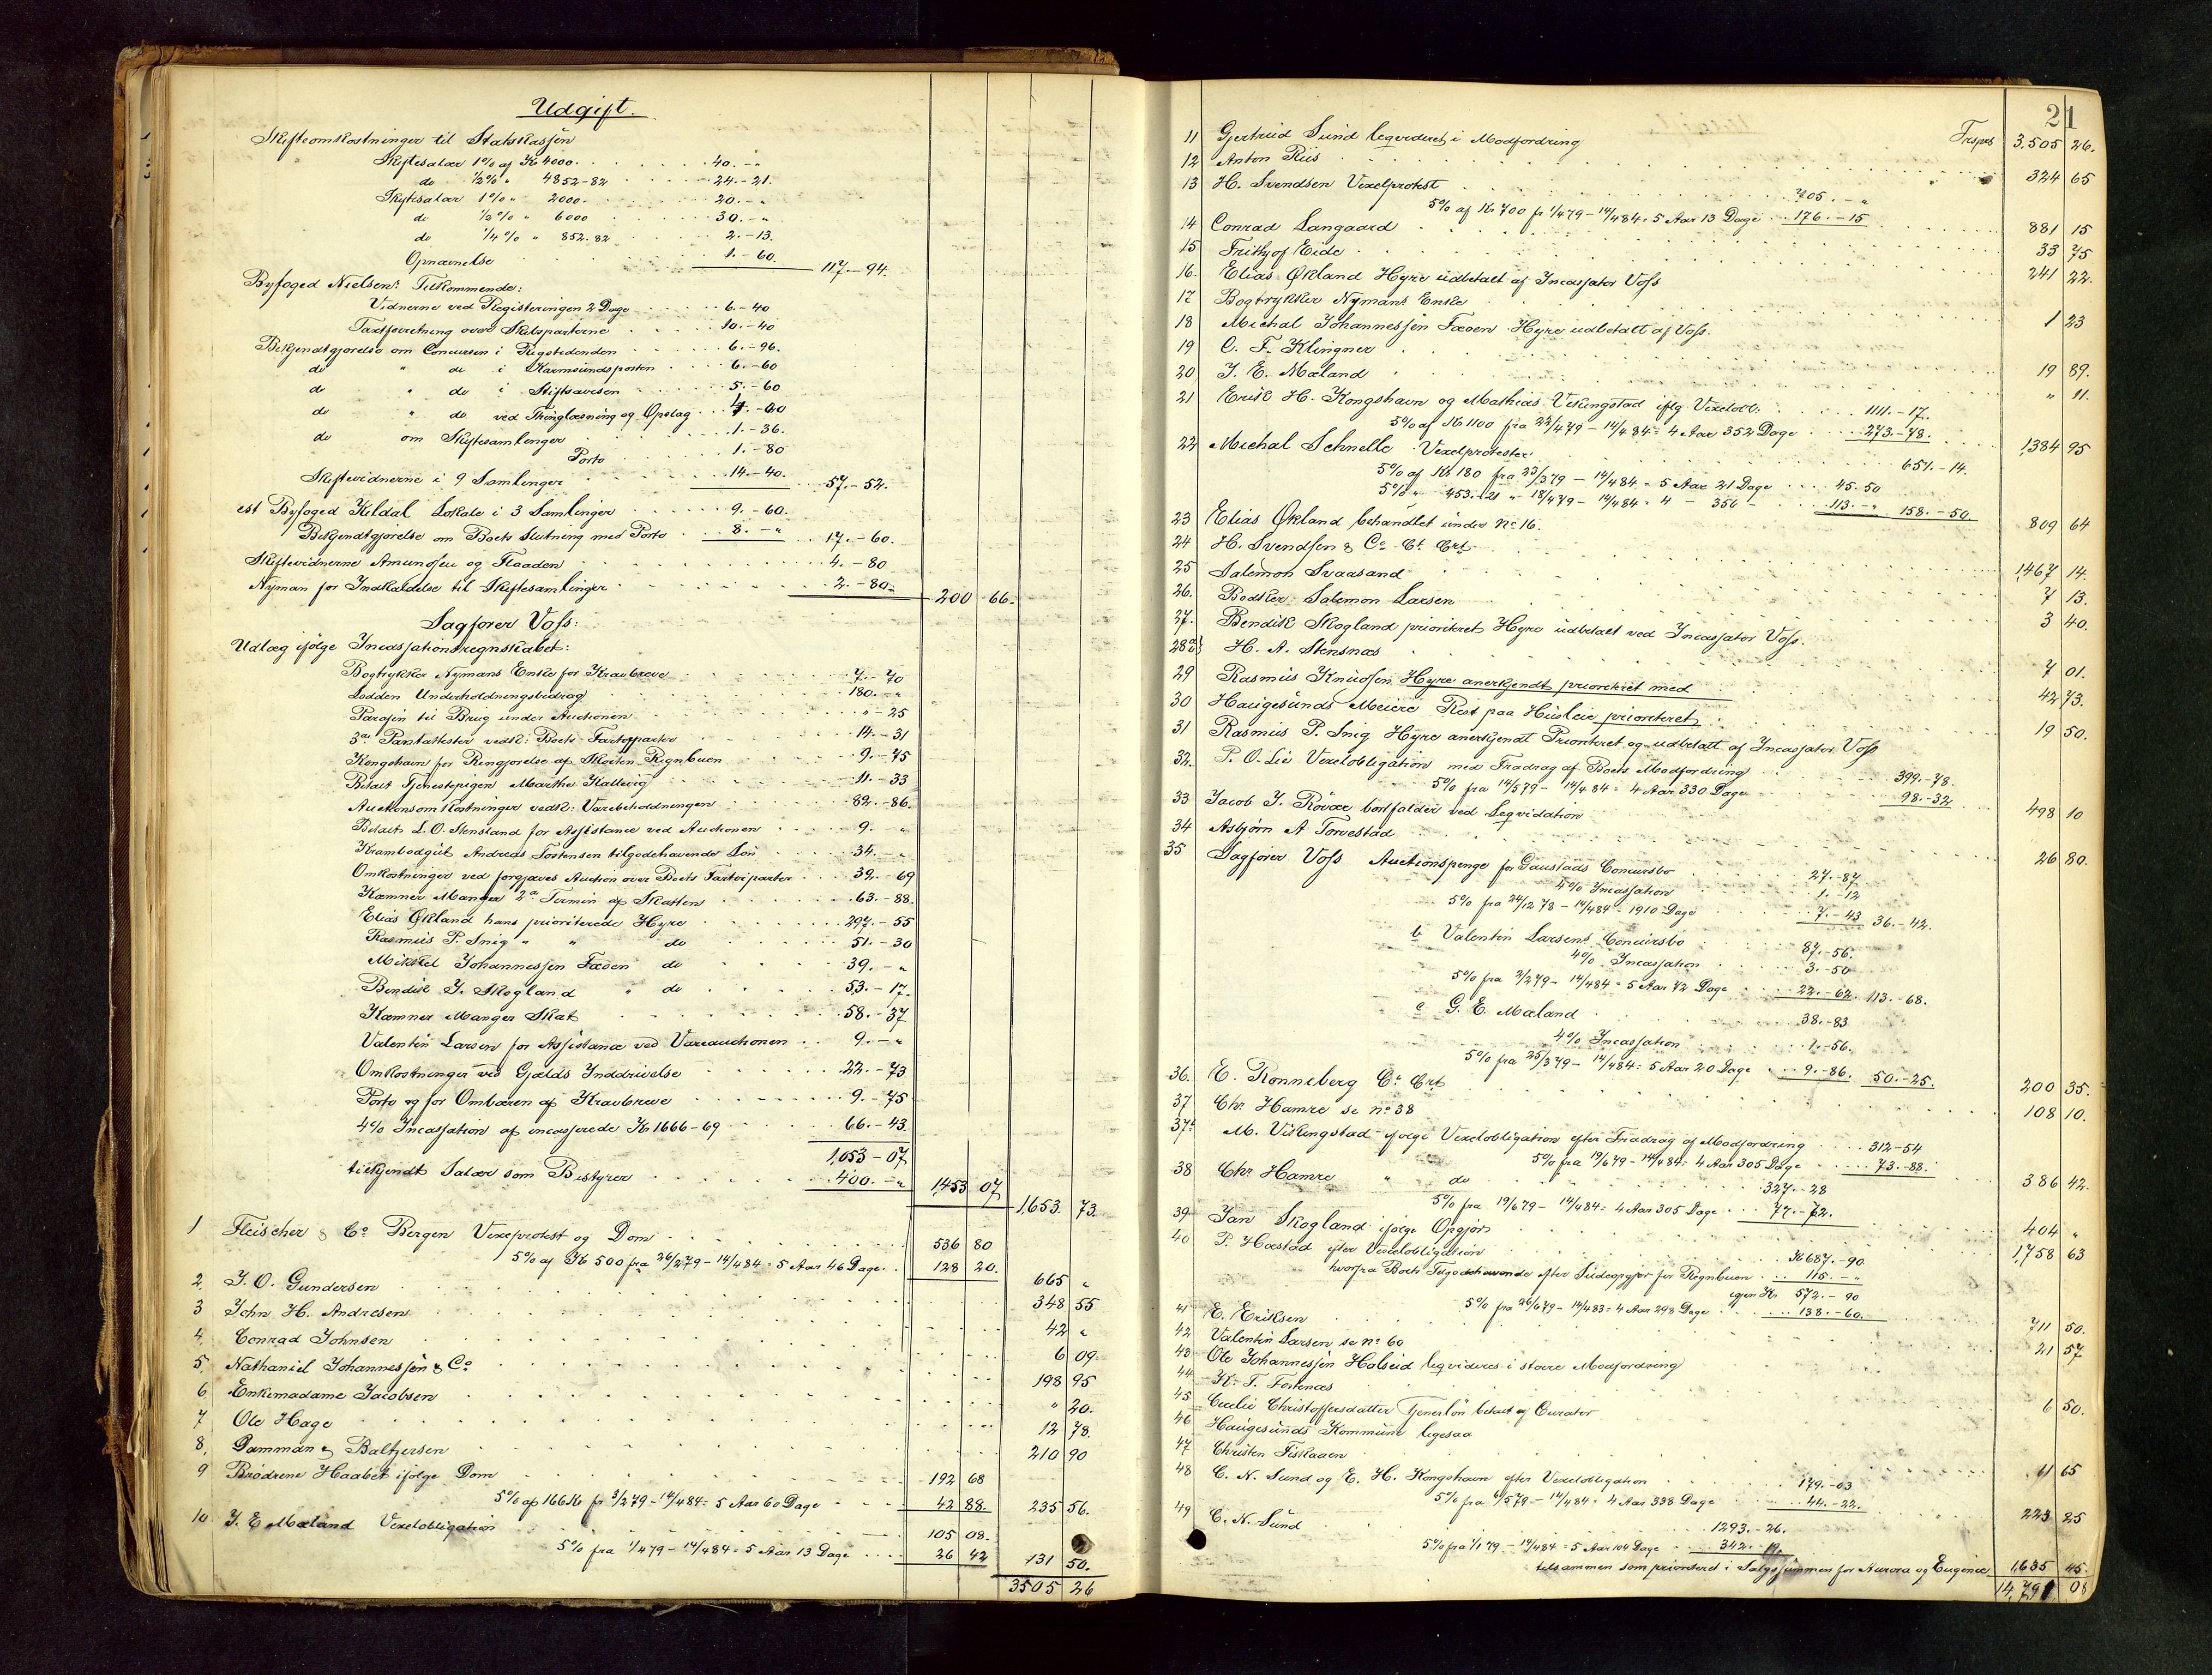 Udgift.
Skifteomkostninger til Statskassjen
Skiftesalær 1% af Kr 4000. 40.-"
do ½% " 4852-82 24.-21.
Skiftesalær 1% " 2000. 20.-"
do ½% " 6000 30.-"
do ¼% " 852.82 2.-13.
Opnævnelse 1.-60. 117.-94.
Byfoged Nielsen: Tilkommende:
Vidnerne ved Registeringen 2 Dage 6.-40
Taxtforretning over Skibsparterne 10.-40
Bekjendtgjørelse om Concursen i Rigstidenden 6.-96.
do " do i Karmsundsposten 6.-60
do " do i Stiftsavisen 5.-60
do " do ved Thinglæsning og Opslag
do om Skiftesamlinger 1.-36.
Porto 1.-80
Skiftevidnerne i 9 Samlinger 14.-40. 57.-52.
cst Byfoged Kildal Lokale i 3 Samlinger 9.-60.
Bekjendtgjørelse om Boets Slutning med Porto 8.-" 17.-60.
Skiftevidnerne Amundsen og Flaaden 4.-80
Nyman for Indkaldelse til Skiftesamlinger 2.-80. 200 66.
Sagfører Voss:
Udlæg ifølge Incassationsregnskabet:
Bogtrykker Nymans Enke for Kravbreve 7.-70
Lodden Underholdningsbidrag 180.-"
Parafin til Brug under Auctionen "-25
3de Pantattester vedk: Boets Fartøiparter 14.-31
Kongshavn for Rengjørelse af Skøiten Regnbuen 9.-75
Betalt Tjenestepigen Marthe Hallevig 11.-33
Auctionsomkostninger vedk: Varebeholdningen 82.-86.
Betalt L. O. Stensland for Assistance ved Auctionen 9.-"
Krambodgut Andreas Torstensen tilgodehavende Løn 34.-"
Omkostninger ved forgjæves Auction over Boets Fartøiparter 32.-69
Kæmner Manger 2a Termin af Skatten 63.-88.
Elias Økland hans prioriterede Hyre 297.-55
Rasmus P. Snig " " do 51.-30
Mikkel Johannessen Fæøen do 39.-"
Bendik J. Skogland " do 53.-17.
Kæmner Manger Skat 58.-37
Valentin Larsen for Assistance ved Vareauctionen 9.-"
Omkostninger ved Gjælds Inddrivelse 22.-73
Porto og for Ombæren af Kravbreve 9.-75
4% Incassation af incasserede Kr 1666-69 66.-43.
1,053-07
tilkjendt Salær som Bestyrer 400.-" 1,453 07
1,653. 73.
1 Fleischer & Co Bergen Vexelprotest og Dom 536 80
5% af Kr 500 fra 26/2 79 - 14/4 84 = 5 Aar 46 Dage 128 20. 665 "
2. J. O. Gundersen 348 55
3 John H. Andresen 42 "
4. Conrad Johnsen 6 09
5. Nathaniel Johannessen & Co 198 95
6 Enkemadame Jacobsen " 20.
7 Ole Hage 12 78.
8. Damman & Baltzersen 210 90
9 Brødrene Haabet ifølge Dom 192 68
5% af 166 Kr fr 3/2 79 - 14/4 84 = 5 Aar 60 Dage 42 88. 235 56.
10. J. E Mæland Vexelobligation 105 08.
5% fra 1/4 79 - 14/4 84 = 5 Aar 13 Dage 26 42 131 50.
3505 26
21
Trspt 3.505 26.
11 Gjertrud Sund leqvideret i Modfordring
12 Anton Riis 324 65
13 H. Svendsen Vexelprotest 705.-"
5% af Kr 700 fr 1/4 79 - 14/4 84 = 5 Aar 13 Dage 176.-15 881 15
14 Conrad Langaard 33 75
15 Frithjof Eide 241 22.
16. Elias Økland Hyre udbetalt af Incassator Voss
17 Bogtrykker Nymans Enke 1 23
18 Michal Johannessen Fæøen Hyre udbetalt af Voss.
19 C. F. Klingner 19 89.
20 J. E. Mæland " 11.
21 Erik H. Kongshavn og Mathias Vikingstad iflg Vexelobl: 1111.-17.
5% af Kr 1100 fra 22/4 79 - 14/4 84 = 4 Aar 352 Dage 273.-78. 1384 95
22 Michal Schnelle Vexelprotester 651.-14.
5% af Kr 180 fra 23/3 79 - 14/4 84 = 5 Aar 21 Dage 45.50
5% " 453.-21 " 18/4 79 - 14/4 84 = 4 - 356 - 113.-" 158.-50. 809 64
23 Elias Økland behandlet under No 16.
24 H. Svendsen & Co Ct. Crt 1,467 14.
25 Salemon Svaasand 7 13.
26. Bødker Salemon Larsen 3 40.
27. Bendik Skogland prioriteret Hyre udbetalt ved Incassator Voss.
28 a b} H. A. Stensnæs 7 01.
29 Rasmus Knudsen Hyre anerkjendt prioriteret med 42 73.
30 Haugesunds Meieri Rest paa Husleie prioriteret 19 50.
31 Rasmus P. Snig Hyre anerkjendt Prioriteret og udbetalt af Incassator Voss
32. P. O. Lie Vexelobligation med Fradrag af Boets Modfordring 399.-78.
5% fra 14/5 79 - 14/4 84 = 4 Aar 330 Dage 98.-32 498 10
33 Jacob J. Røvær bortfalder ved Leqvidation
34 Asbjørn A Torvestad 26 80.
35 Sagfører Voss Auctionspenge for Gaustads Concursbo 27.-87.
4% Incassation 1.-12
5% fra 24/12 78 - 14/4 84 = 1910 Dage 7.-43 36.-42.
b Valentin Larsens Concursbo 87.-56.
4% Incassation 3.-50
5% fra 2/2 79 - 14/4 84 = 5 Aar 72 Dage 22.-62. 113.-68.
c G. E. Mæland 38.-83
4% Incassation 1.-56.
5% fra 25/3 79 - 14/4 84 = 5 Aar 20 Dage 9.-86. 50.-25. 200 35.
36. E. Rønneberg Ct Crt 108 10.
37 Chr. Hamre se no 38
37a M. Vikingstad ifølge Vexelobligation efter Fradrag af Modfordring 312-54
5% fra 19/6 79 - 14/4 84 = 4 Aar 305 Dage 73.-88. 386 42.
38 Chr Hamre " do 327.-28
5% fra 19/6 79 - 14/4 84 = 4 Aar 305 Dage 77.-72. 404 "
39 Jan Skogland ifølge Opgjør 1,758 63
40 P. Hæstad efter Vexelobligation Kr 687.-90
hvorfra Boets Tilgodehavende efter Sildeopgjør for Regnbuen 115.-"
igjen Kr 572.-90
5% fra 26/6 79 - 14/4 83 = 4 Aar 298 Dage 138.-60. 711 50.
41 E. Eriksen 21 57
42 Valentin Larsen se no 60
43 Ole Johannessen Holseid leqvideres i større Modfordring
44 K. T. Fosenæs 6 50.
45 Cecilie Christoffersdatter Tjenerløn betalt af Curator
46 Haugesunds Kommune ligesaa
47 Christen Fiskaaen 11 65
48 C. N. Sund og E. H. Kongshavn efter Vexelobligation 179.-03
5% fra 6/5 79 - 14/4 84 = 4 Aar 338 Dage 44.-22. 223 25
49 C. N. Sund 1293.-26.
5% fra 1/1 79 - 14/4 84 = 5 Aar 104 Dage 342.-19.
tilsammen som prioriteret i Salgssummen for Aurora og Eugenie 1,635 45.
14,791 08